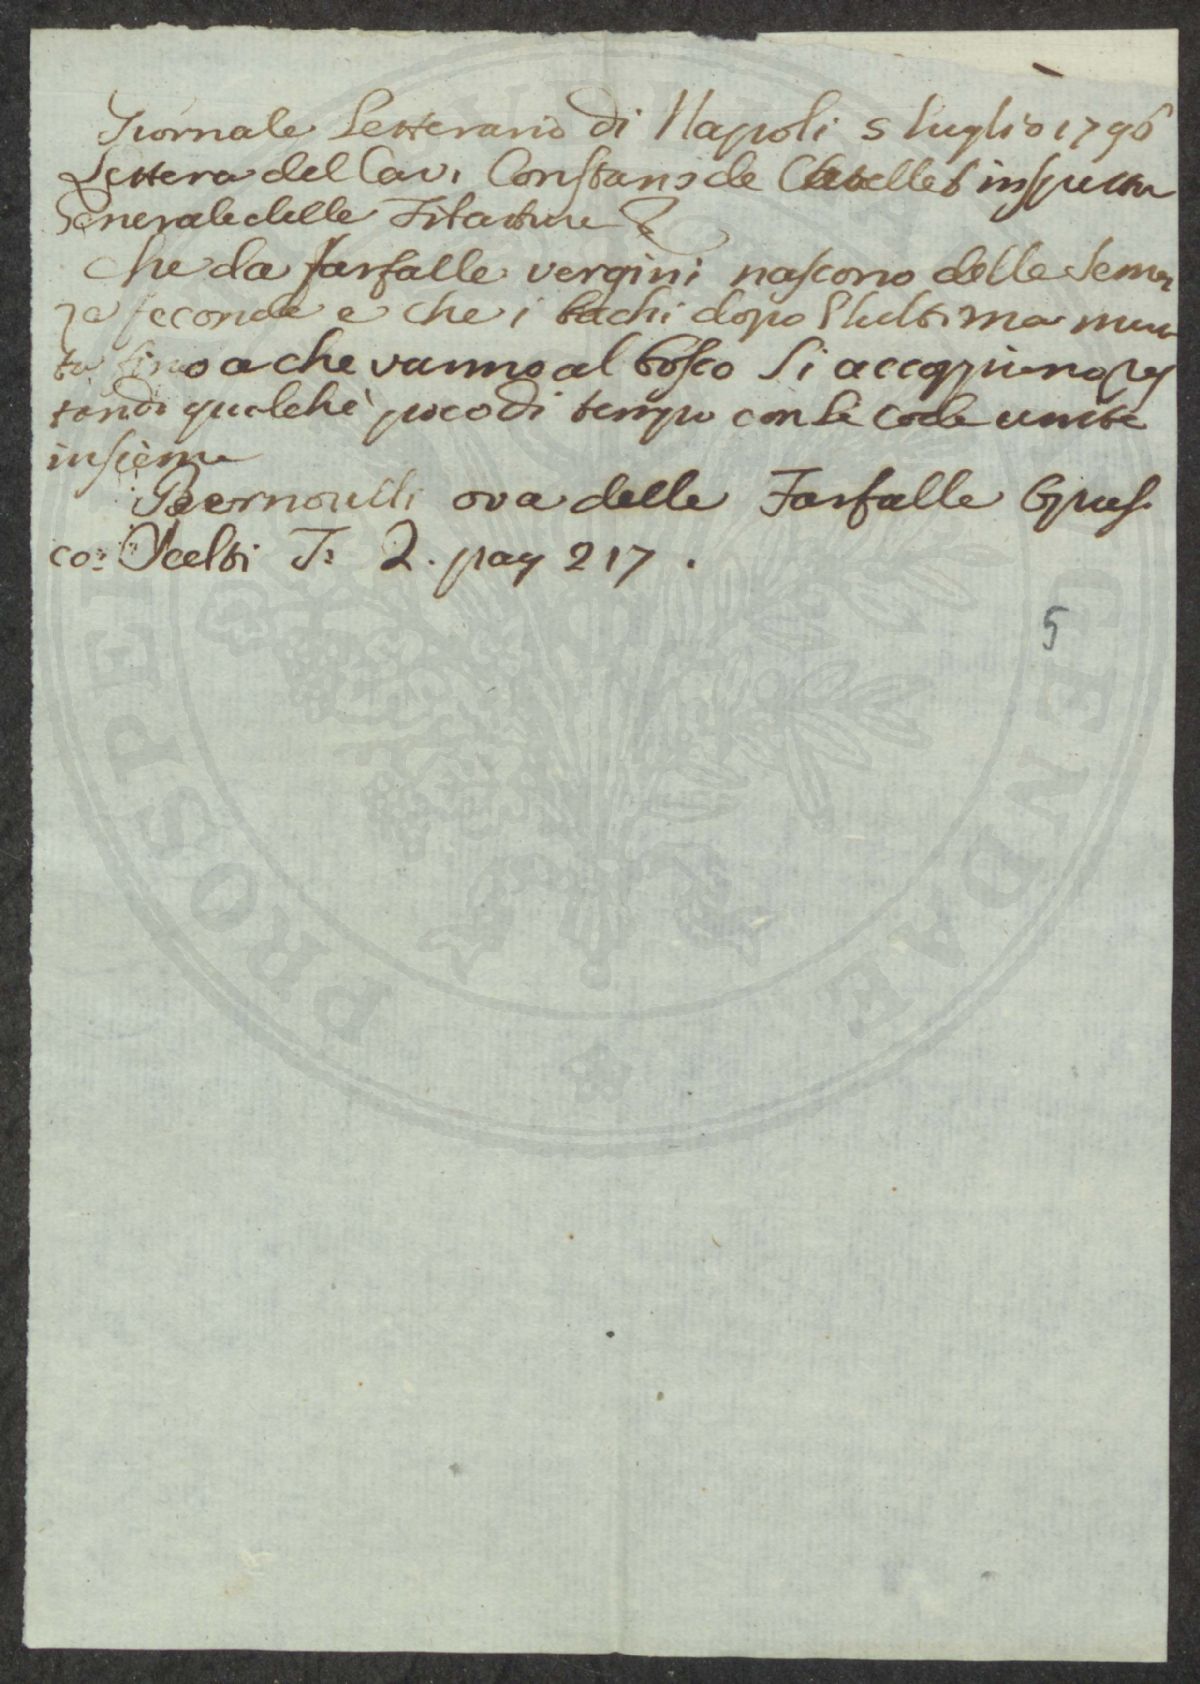 Giornale Letterario di Napoli 5 luglio 1796
Lettera del Cav. Constans de Castellet
Generale delle Filature &
che da farfalle vergini nascono delle Semen
ze feconde e che i bachi dopo l'ultima mu
ta sino a che vanno al bosco si accoppiano res
tando qualche poco di tempo con le code unite
insieme
Bernoulli ova delle Farfalle Opus.
co: Scelti T: 2. pag 217.
5
PROSPERI
GENDAE